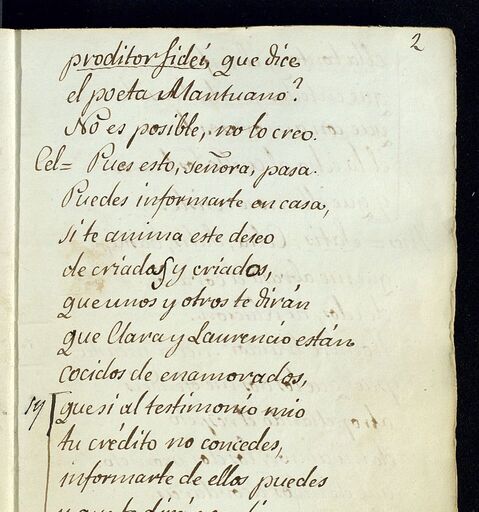 2
proditor fidei, que dice
el poeta Mantuano?
No es posible, no lo creo.
Cel= Pues esto, señora, pasa.
Puedes informarte en casa,
si te anima este deseo
de criados y criados,
que unos y otros te dirán
que Clara y Laurencio están
cocidos de enamorados,
que si al testimonio mio
tu crédito no concedes,
informarte de ellos puedes